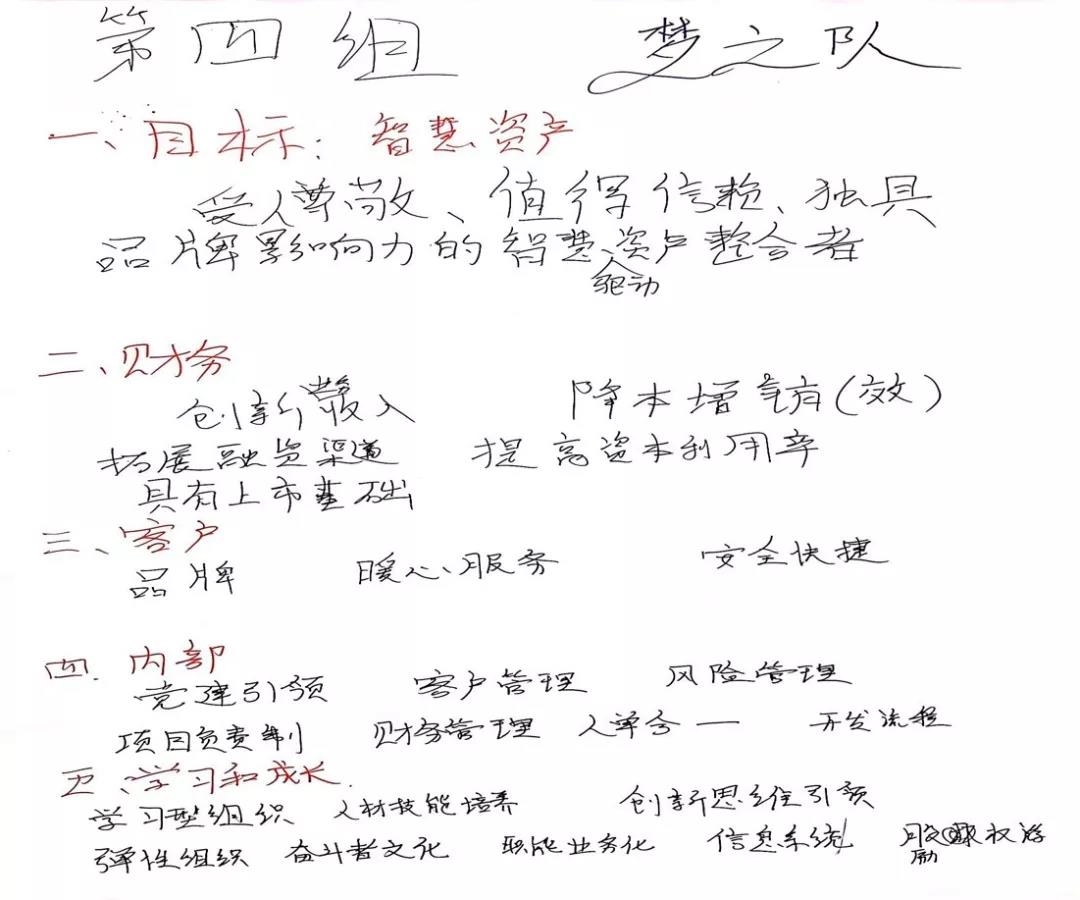 第四组 梦之队
一、目标：智慧资产
受人尊敬、值得信赖、独具
品牌影响力的智慧资产整合者
驱动
二、财务
创新营收入 降本增育(效)
拓展融资渠道 提高资本利用率
具有上市基础
三、客户
品牌 暖心服务 安全快捷
四. 内部
党建引领 客户管理 风险管理
项目负责制 财务管理 人单合一 开发流程
五、学习和成长.
学习型组织 人材技能培养 创新思维引领
弹性组织 奋斗者文化 职能业务化 信息系统 股权激
励